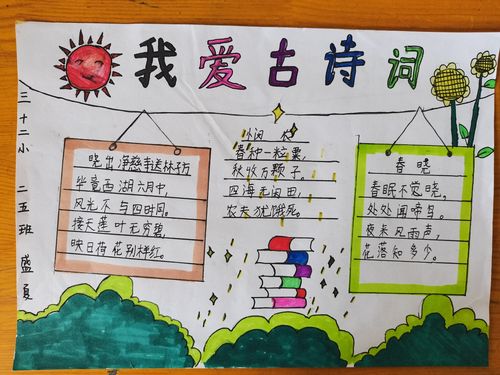 我爱古诗词
三十二小 二五班 盛夏
晓出净慈寺送林子方
毕竟西湖六月中，
风光不与四时同。
接天莲叶无穷碧，
映日荷花别样红。
悯农
春种一粒粟，
秋收万颗子，
四海无闲田，
农夫犹饿死。
春晓
春眠不觉晓，
处处闻啼鸟。
夜来风雨声，
花落知多少。